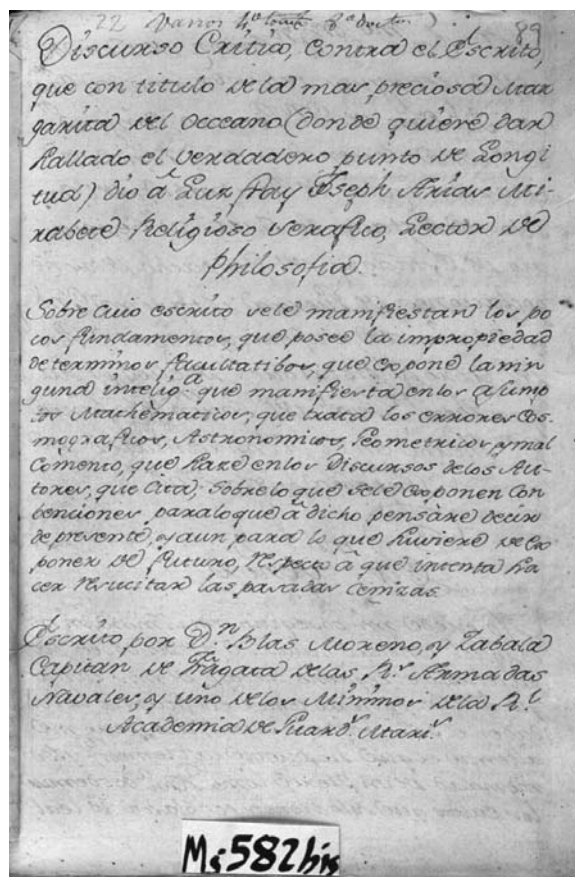 22 Varios 4º tomo 8ª doctos 89
Discurso Critico, Contra el Escrito,
que con titulo de la mas preciosa Mar
garita del Occeano (donde quiere dar
hallado el verdadero punto de Longi
tud) dio â Luz fray Joseph Arias Mi-
rabete Religioso Serafico, Lector de
Philosofia.
Sobre cuio escrito sele manifiestan los po
cos fundamentos, que posee la impropiedad
de terminos facultatibos, que expone la nin
guna inteligª que manifiesta en los asump
tos Mathèmaticos, que trata los errores Cos-
mograficos, Astronomicos, Geometricos, y mal
Comento, que haze en los Discursos de los Au-
tores, que Cita; Sobre lo que sele exponen Con
benciones para lo que â dicho pensàre decir
de presente, y aun para lo que huviere de ex
poner de futuro, respecto â que intenta ha
cer resucitar las pasadas Cenizas.
Escrito por Dn Blas Moreno, y Zabala
Capitan de Fragata de las Rs Armadas
Navales, y uno de los Minimos de la Rl
Academia de Guards Maris
Ms 582 bis